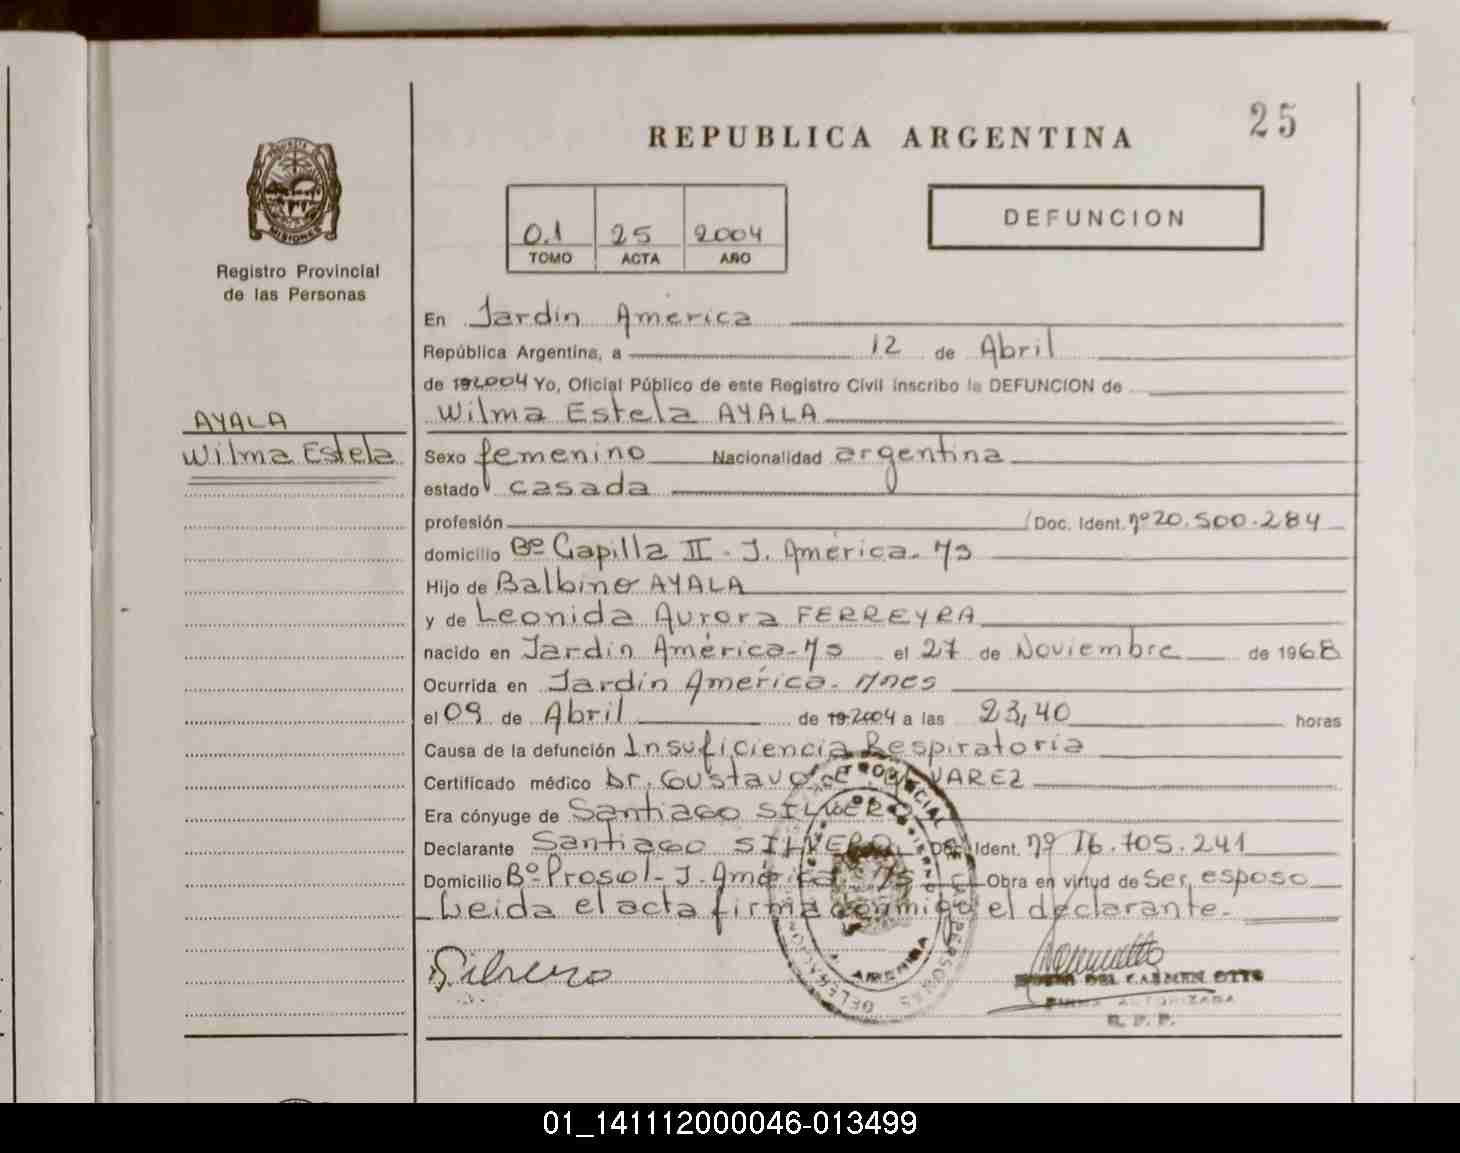 25
REPUBLICA ARGENTINA
MISIONES
Registro Provincial
de las Personas
DEFUNCION
0.1 25 2004
TOMO ACTA AÑO
En Jardín América
República Argentina, a 12 de Abril
de 192004 Yo, Oficial Público de este Registro Civil inscribo la DEFUNCION de
Wilma Estela AYALA
AYALA
Wilma Estela
Sexo femenino Nacionalidad argentina
estado casada
profesión Doc. Ident. nº 20.500.284
domicilio Bº Capilla II - J. América - Ms
Hijo de Balbino AYALA
y de Leonida Aurora FERREYRA
nacido en Jardín América - Ms el 27 de Noviembre de 1968
Ocurrida en Jardín América - Mnes
el 09 de Abril de 19 2004 a las 23,40 horas
Causa de la defunción Insuficiencia Respiratoria
Certificado médico Dr. Gustavo
Era cónyuge de Santiago SILVERO
Declarante Santiago SILVERO Doc. Ident. nº 16.705.241
Domicilio Bº Prosol - J. América Ms Obra en virtud de Ser esposo
Leida el acta firma conmigo el declarante.
Silvero
DEL CARMEN OTTO
FIRMA AUTORIZADA
R. P. P.
01_141112000046-013499